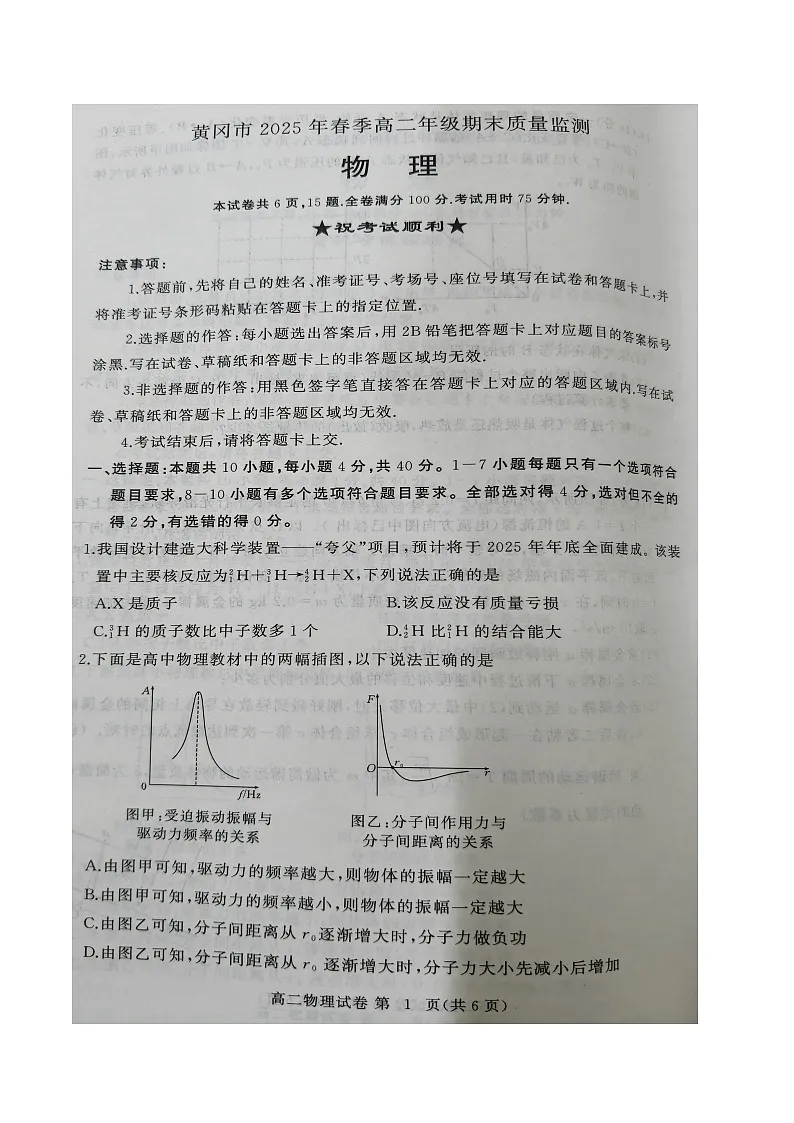 黄冈市 2025 年春季高二年级期末质量监测
物 理
本试卷共 6 页,15 题.全卷满分 100 分.考试用时 75 分钟.
★祝考试顺利★
注意事项:
1.答题前,先将自己的姓名、准考证号、考场号、座位号填写在试卷和答题卡上,并
将准考证号条形码粘贴在答题卡上的指定位置.
2.选择题的作答:每小题选出答案后,用 2B 铅笔把答题卡上对应题目的答案标号
涂黑.写在试卷、草稿纸和答题卡上的非答题区域均无效.
3.非选择题的作答:用黑色签字笔直接答在答题卡上对应的答题区域内.写在试
卷、草稿纸和答题卡上的非答题区域均无效.
4.考试结束后,请将答题卡上交.
一、选择题:本题共 10 小题,每小题 4 分,共 40 分。1-7 小题每题只有一个选项符合
题目要求,8-10 小题有多个选项符合题目要求。全部选对得 4 分,选对但不全的
得 2 分,有选错的得 0 分。
1.我国设计建造大科学装置——“夸父”项目,预计将于 2025 年年底全面建成。该装
置中主要核反应为²₁H+³₁H→⁴₂H+X,下列说法正确的是
A.X 是质子 B.该反应没有质量亏损
C.³₁H 的质子数比中子数多 1 个 D.⁴₂H 比²₁H 的结合能大
2.下面是高中物理教材中的两幅插图,以下说法正确的是
A
0
f/Hz
F
O
r₀
r
图甲:受迫振动振幅与
驱动力频率的关系
图乙:分子间作用力与
分子间距离的关系
A.由图甲可知,驱动力的频率越大,则物体的振幅一定越大
B.由图甲可知,驱动力的频率越小,则物体的振幅一定越大
C.由图乙可知,分子间距离从 r₀逐渐增大时,分子力做负功
D.由图乙可知,分子间距离从 r₀ 逐渐增大时,分子力大小先减小后增加
高二物理试卷 第 1 页(共 6 页)